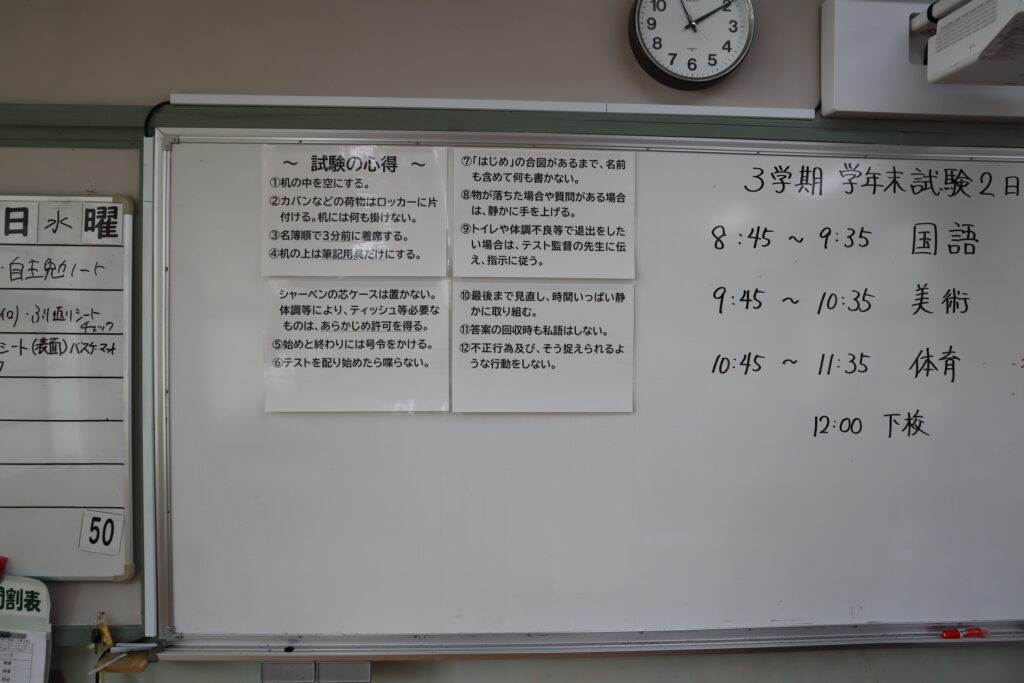 10
9
8
7
6
5
4
3
2
日 水 曜
・自主勉ノート
・ふり返りシート
チェック
シート(表面)バスケ・マット
50
割表
~ 試験の心得 ~
①机の中を空にする。
②カバンなどの荷物はロッカーに片
付ける。机には何も掛けない。
③名簿順で3分前に着席する。
④机の上は筆記用具だけにする。
シャーペンの芯ケースは置かない。
体調等により、ティッシュ等必要な
ものは、あらかじめ許可を得る。
⑤始めと終わりには号令をかける。
⑥テストを配り始めたら喋らない。
⑦「はじめ」の合図があるまで、名前
も含めて何も書かない。
⑧物が落ちた場合や質問がある場合
は、静かに手を上げる。
⑨トイレや体調不良等で退出をした
い場合は、テスト監督の先生に伝
え、指示に従う。
⑩最後まで見直し、時間いっぱい静
かに取り組む。
⑪答案の回収時も私語はしない。
⑫不正行為及び、そう捉えられるよ
うな行動をしない。
3学期 学年末試験2日
8:45 ~ 9:35 国語
9:45 ~ 10:35 美術
10:45 ~ 11:35 体育
12:00 下校